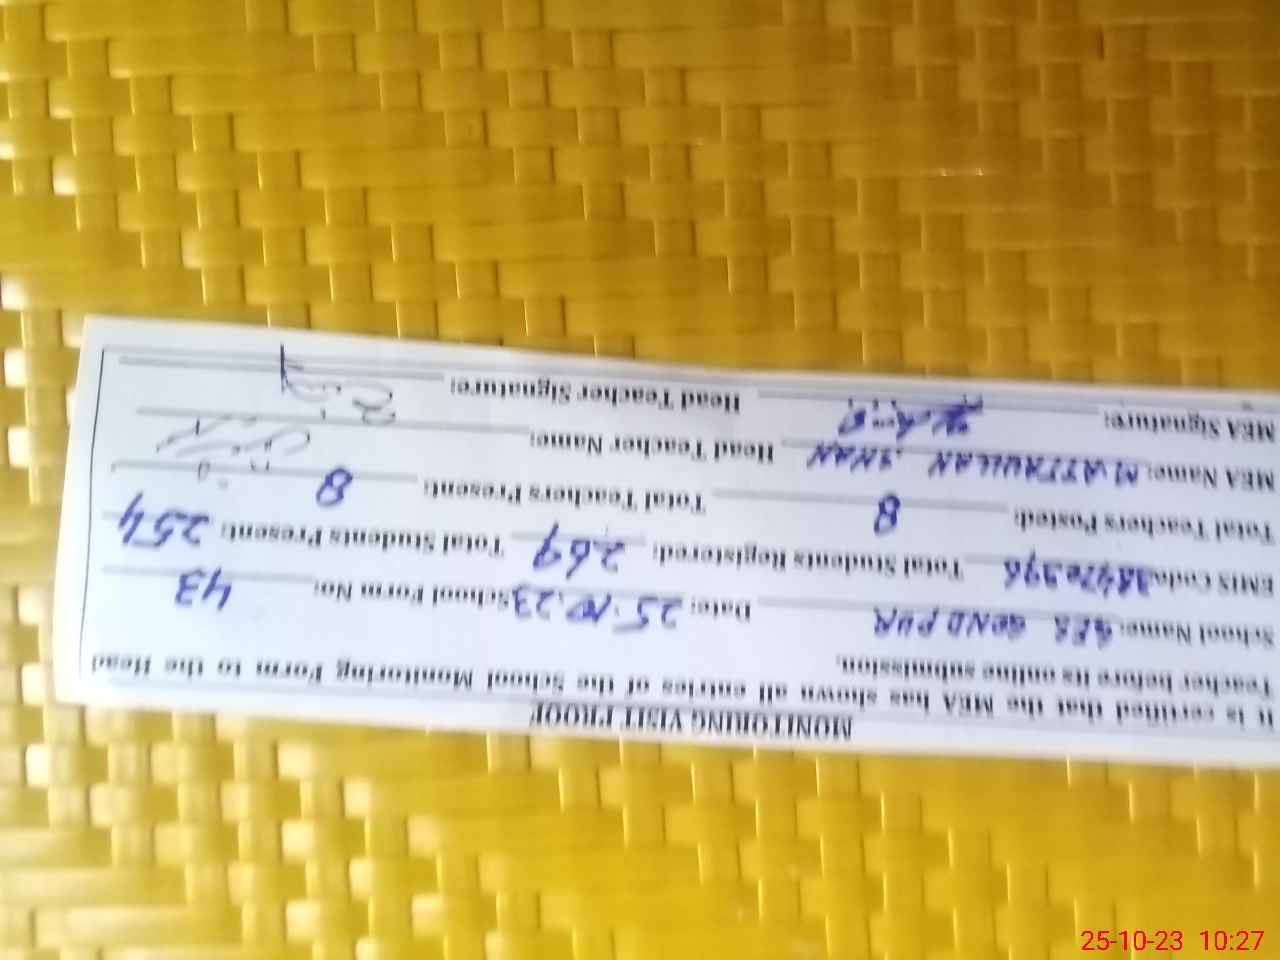 MONITORING VISIT PROOF
It is certified that the MEA has shown all entries of the School Monitoring Form to the Head
Teacher before its online submission.
School Name: GES GONDPUR Date: 25.10.23 School Form No: 43
EMIS Code: Total Students Registered: 269 Total Students Present: 254
Total Teachers Posted: 8 Total Teachers Present: 8
MEA Name: M. ATTAULLAH KHAN Head Teacher Name:
MEA Signature: Head Teacher Signature:
25-10-23 10:27